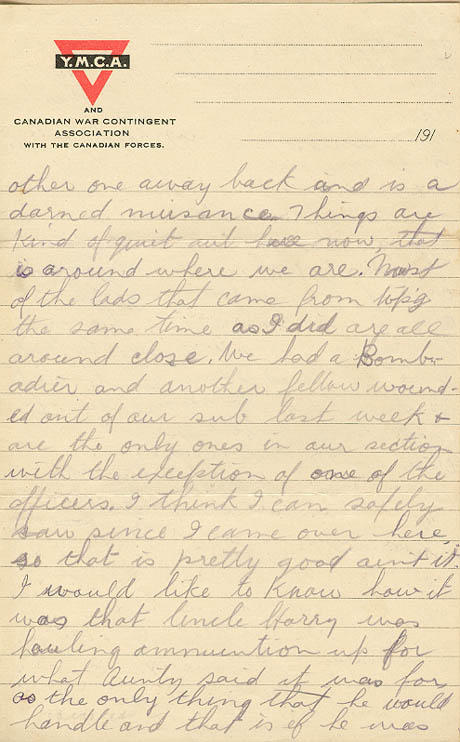 Y.M.C.A.
AND
CANADIAN WAR CONTINGENT
ASSOCIATION
WITH THE CANADIAN FORCES.
191
other one away back and is a
darned nuisance. Things are
kind of quiet out here now, that
is around where we are. Most
of the lads that came from Wpg
the same time as I did are all
around close. We had a Bomb-
adier and another fellow wound-
ed out of our sub last week &
are the only ones in our section
with the exception of one of the
officers. I think I can safely
saw since I came over here,
so that is pretty good aint it.
I would like to know how it
was that Uncle Harry was
hauling ammunition up for
what Aunty said it was for,
as the only thing that he would
handle and that is if he was